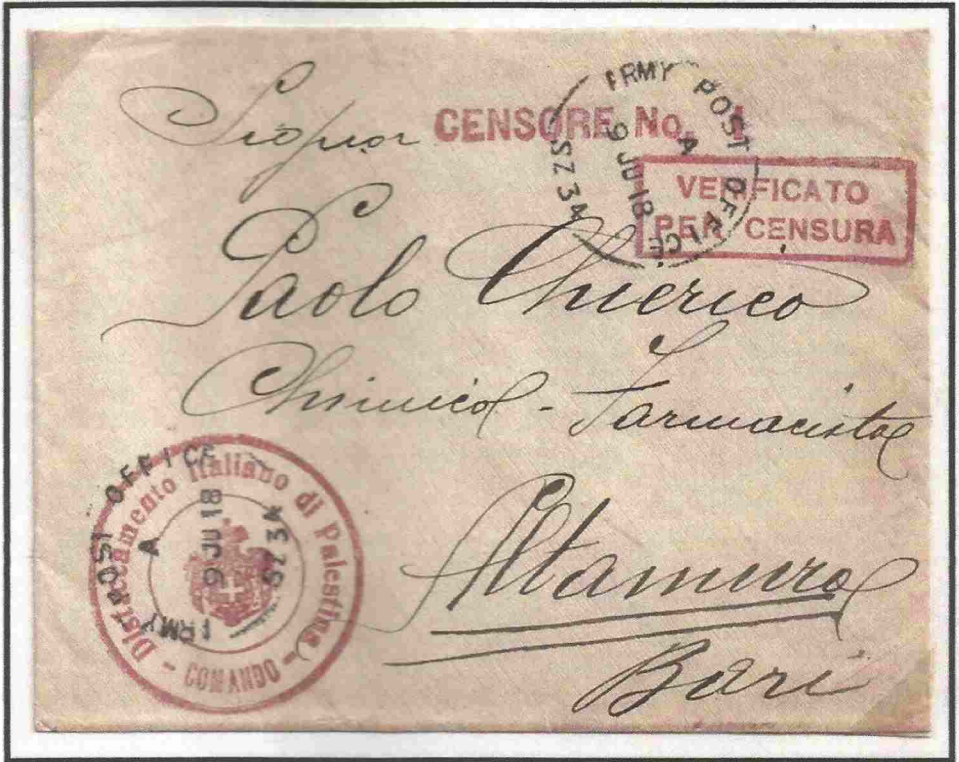 Signor
CENSORE No. 1
ARMY POST OFFICE
A
9 JU 18
SZ 34
VERIFICATO
PER CENSURA
Paolo Chierico
Chimico - Farmacista
Altamura
Bari
Distaccamento Italiano di Palestina
- COMANDO -
ARMY POST OFFICE
A
9 JU 18
SZ 34